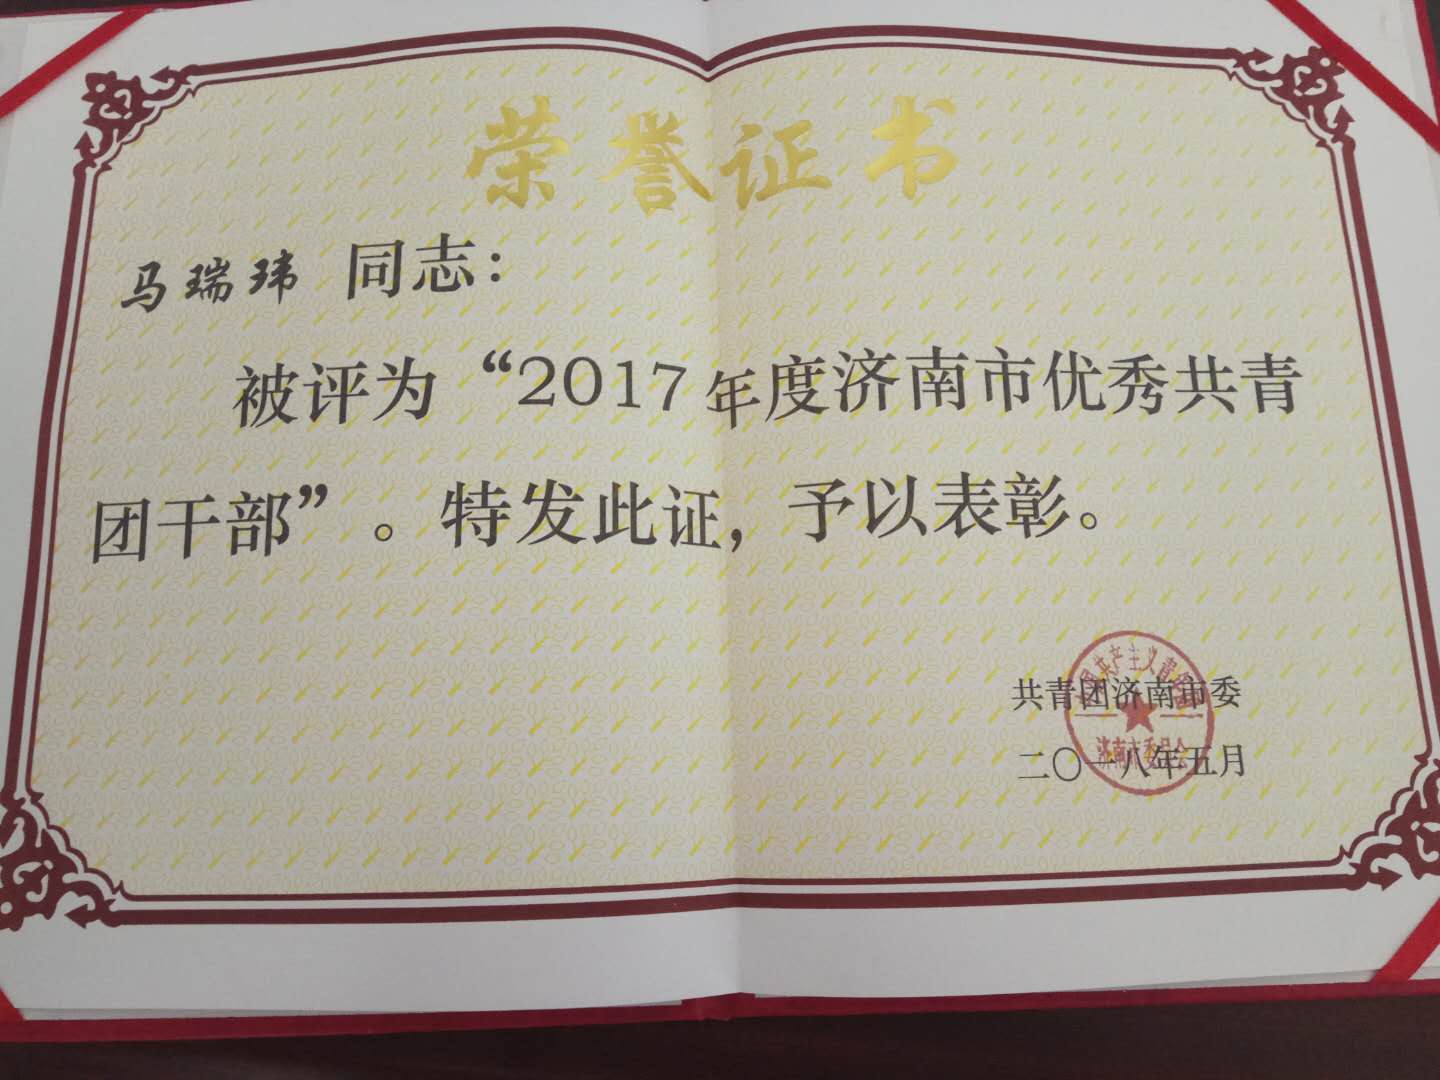 荣誉证书
马瑞玮 同志：
被评为“2017年度济南市优秀共青
团干部”。特发此证，予以表彰。
共青团济南市委
二〇一八年五月
济南市委员会